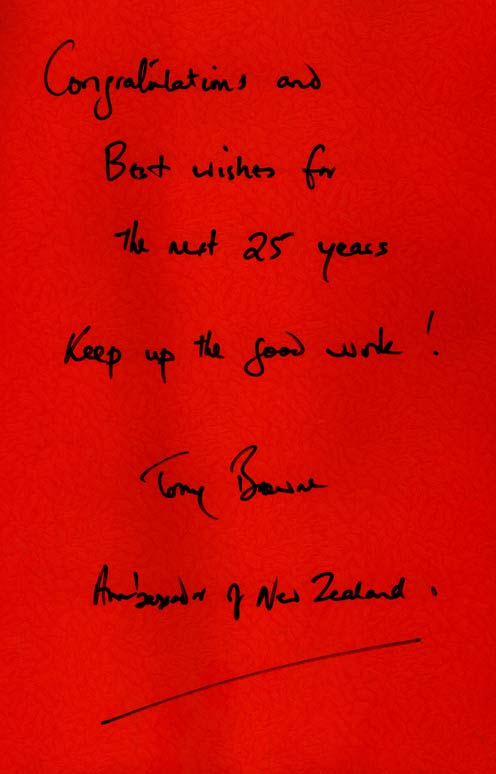 Congratulations and
Best wishes for
The next 25 years
Keep up the good work!
Tony Browne
Ambassador of New Zealand.